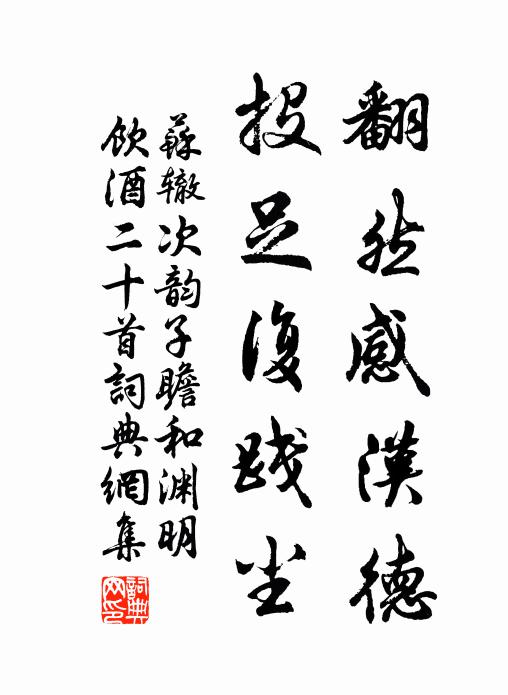 翻然感漢德
投足復踐尘
蘇辙次韵子瞻和渊明
飲酒二十首詞典網集
詞典
网印